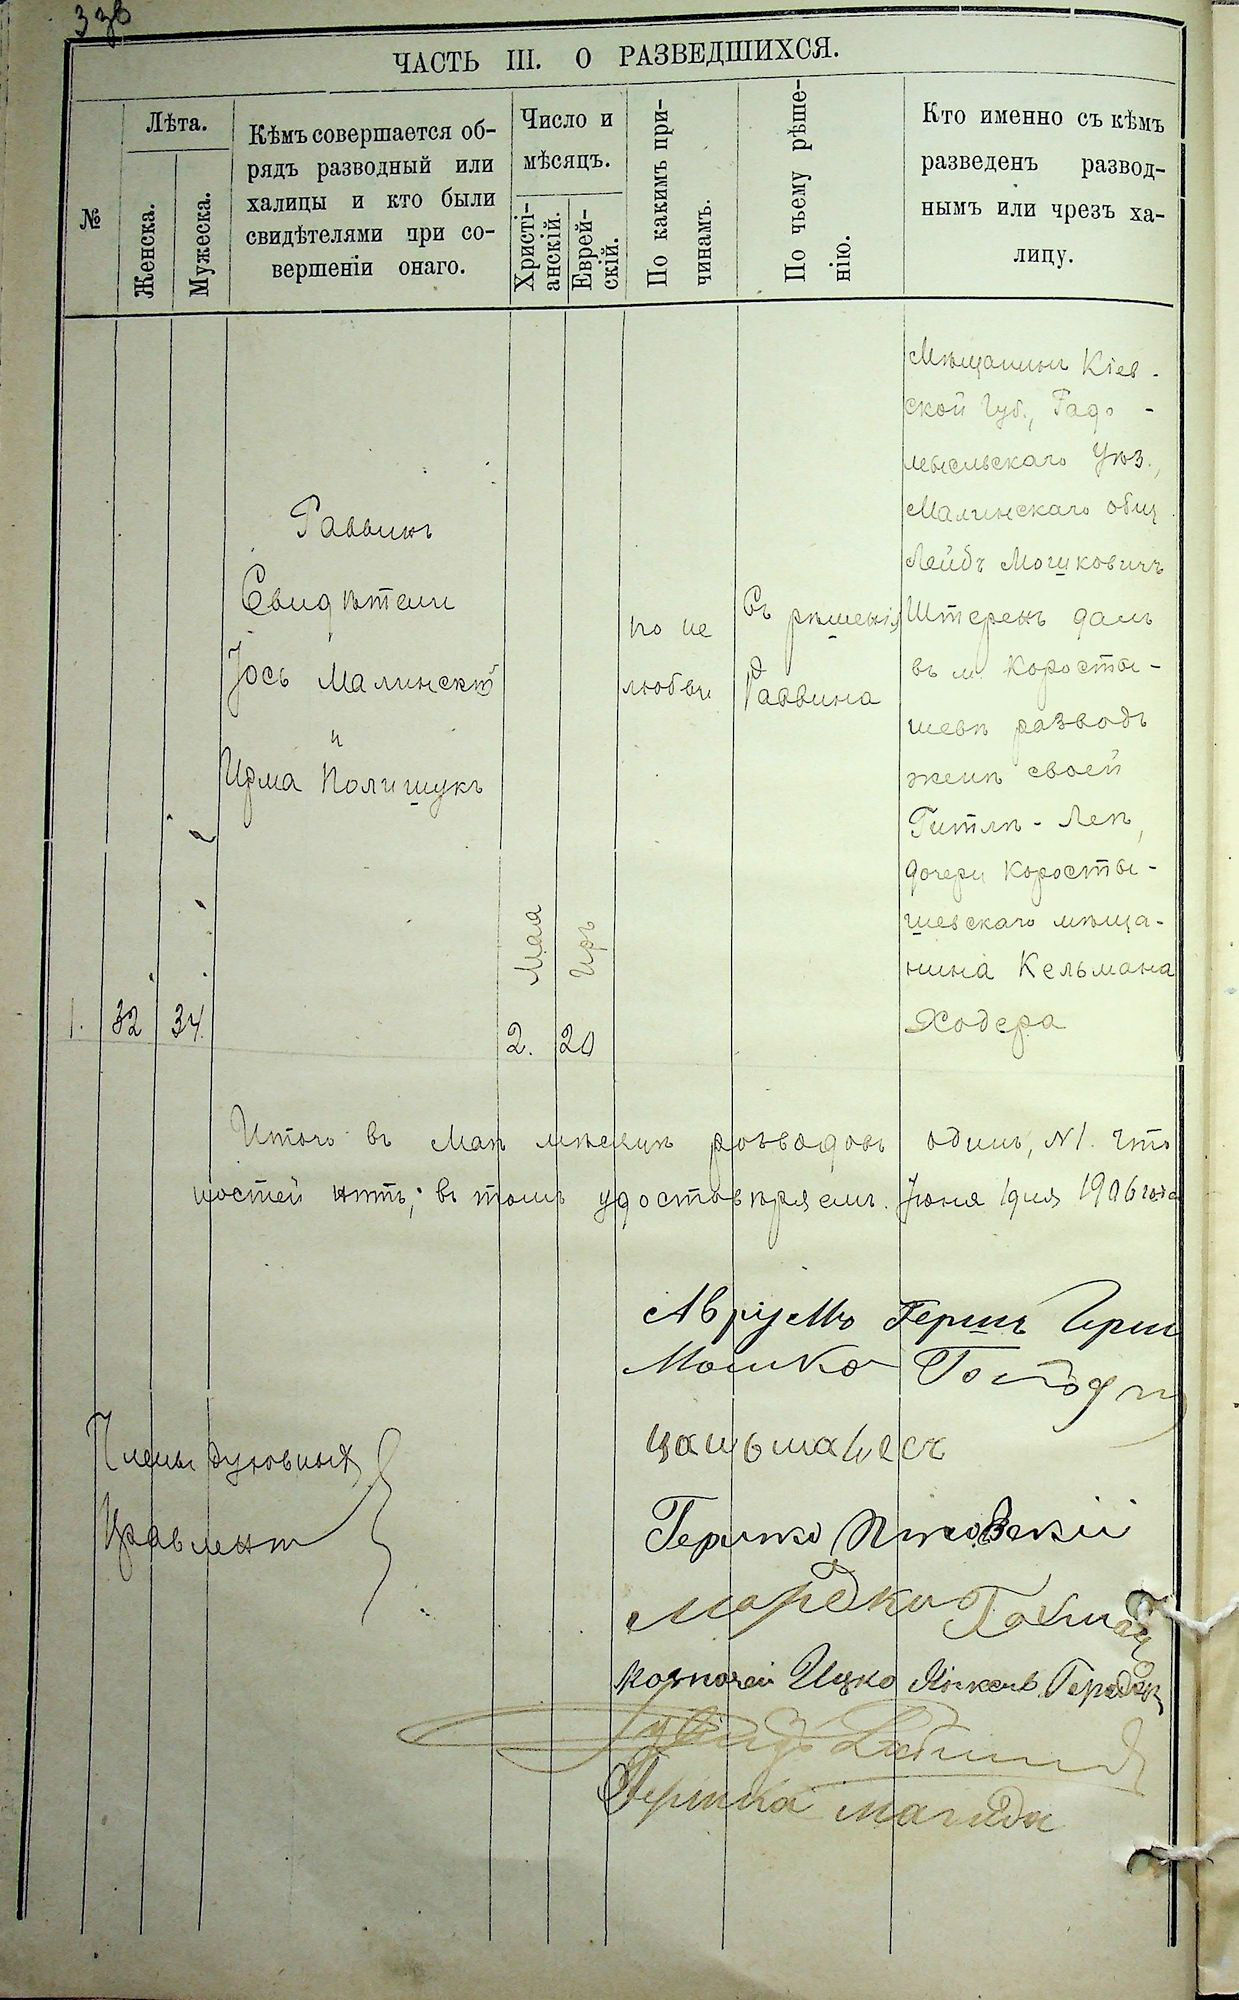 ЧАСТЬ III. О РАЗВЕДШИХСЯ.
№
Лѣта.
Женска.
Мужеска.
Кѣмъ совершается об-
рядъ разводный или
халицы и кто были
свидѣтелями при со-
вершеніи онаго.
Число и
мѣсяцъ.
Христі-
анскій.
Еврей-
скій.
По какимъ при-
чинамъ.
По чьему рѣше-
нію.
Кто именно съ кѣмъ
разведенъ развод-
нымъ или чрезъ ха-
лицу.
1.
32
34
Раввинъ
Свидѣтели
Іось Малинскій
и
Полищукъ
Мая
2.
Иръ
20
по не
любви
Съ рѣшенія
Раввина
Мѣщанинъ Кіев-
ской Губ., Радо-
мысльскаго Уѣз.,
Малинскаго общ
Лейбъ Мошковичъ
Штеренъ далъ
въ м. Коросты-
шевѣ разводъ
женѣ своей
Гитлѣ-Леѣ,
дочери Коросты-
шевскаго мѣща-
нина Кельмана
Ходера
Итого въ Маѣ мѣсяцѣ разводовъ одинъ, №1. что
ностей нѣтъ; въ томъ удостовѣряемъ. Іюня 1 дня 1906 года
Аврумъ Гершъ
Мошко
Члены духовнаго
Правленія
Гершко
Мордко
Казначей Ицко
Гершка